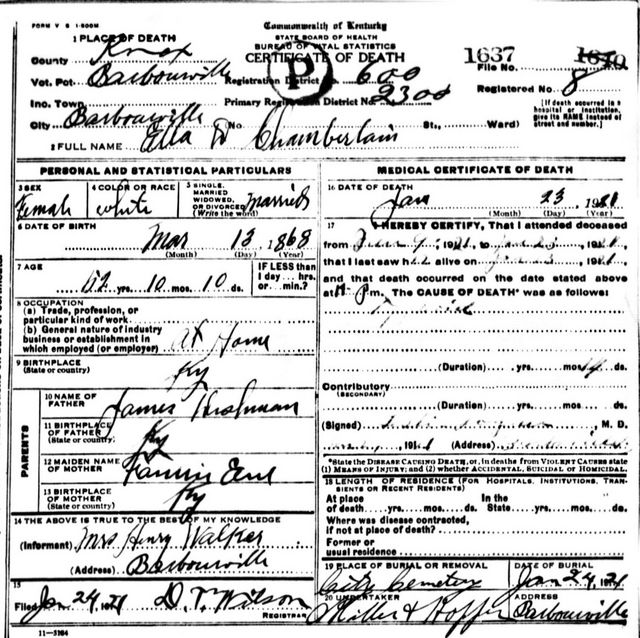 FORM V S 1-500M
Commonwealth of Kentucky
STATE BOARD OF HEALTH
BUREAU OF VITAL STATISTICS
CERTIFICATE OF DEATH
1 PLACE OF DEATH
County Knox
Vot. Pct Barbourville
Registration District No. 600
File No. 1637
Inc. Town
Primary Registration District No. 2300
Registered No. 8
City Barbourville (No. St., Ward)
[If death occurred in a hospital or institution, give its NAME instead of street and number.]
2 FULL NAME Ella D Chamberlain
P
PERSONAL AND STATISTICAL PARTICULARS
3 SEX Female
4 COLOR OR RACE white
5 SINGLE, MARRIED WIDOWED, OR DIVORCED (Write the word) Married
6 DATE OF BIRTH
Mar 13, 1868
(Month) (Day) (Year)
7 AGE
52 yrs. 10 mos. 10 ds.
IF LESS than 1 day... hrs. or... min.?
8 OCCUPATION
(a) Trade, profession, or particular kind of work
(b) General nature of industry business or establishment in which employed (or employer) At Home
9 BIRTHPLACE (State or country) Ky
PARENTS
10 NAME OF FATHER James
11 BIRTHPLACE OF FATHER (State or country) Ky
12 MAIDEN NAME OF MOTHER Fannie
13 BIRTHPLACE OF MOTHER (State or country) Ky
14 THE ABOVE IS TRUE TO THE BEST OF MY KNOWLEDGE
(Informant) Mrs Henry Walker
(Address) Barbourville
15
Filed Jan 24, 1921 D. T. Wilson
REGISTRAR
11-3184
MEDICAL CERTIFICATE OF DEATH
16 DATE OF DEATH
Jan 23, 1921
(Month) (Day) (Year)
17 I HEREBY CERTIFY, That I attended deceased
from 1921, to 1921,
that I last saw her alive on 1921,
and that death occurred on the date stated above
at M. The CAUSE OF DEATH* was as follows:
(Duration) yrs. mos. 14 ds.
Contributory
(SECONDARY)
(Duration) yrs. mos. ds.
(Signed) M. D.
(Address)
*State the DISEASE CAUSING DEATH, or, in deaths from VIOLENT CAUSES state (1) MEANS OF INJURY; and (2) whether ACCIDENTAL, SUICIDAL or HOMICIDAL.
18 LENGTH OF RESIDENCE (FOR HOSPITALS, INSTITUTIONS, TRANSIENTS OR RECENT RESIDENTS)
At place of death yrs. mos. ds. In the State yrs. mos. ds.
Where was disease contracted, if not at place of death?
Former or usual residence
19 PLACE OF BURIAL OR REMOVAL City Cemetery
DATE OF BURIAL Jan 24, 1921
20 UNDERTAKER Miller & Hopper
ADDRESS Barbourville